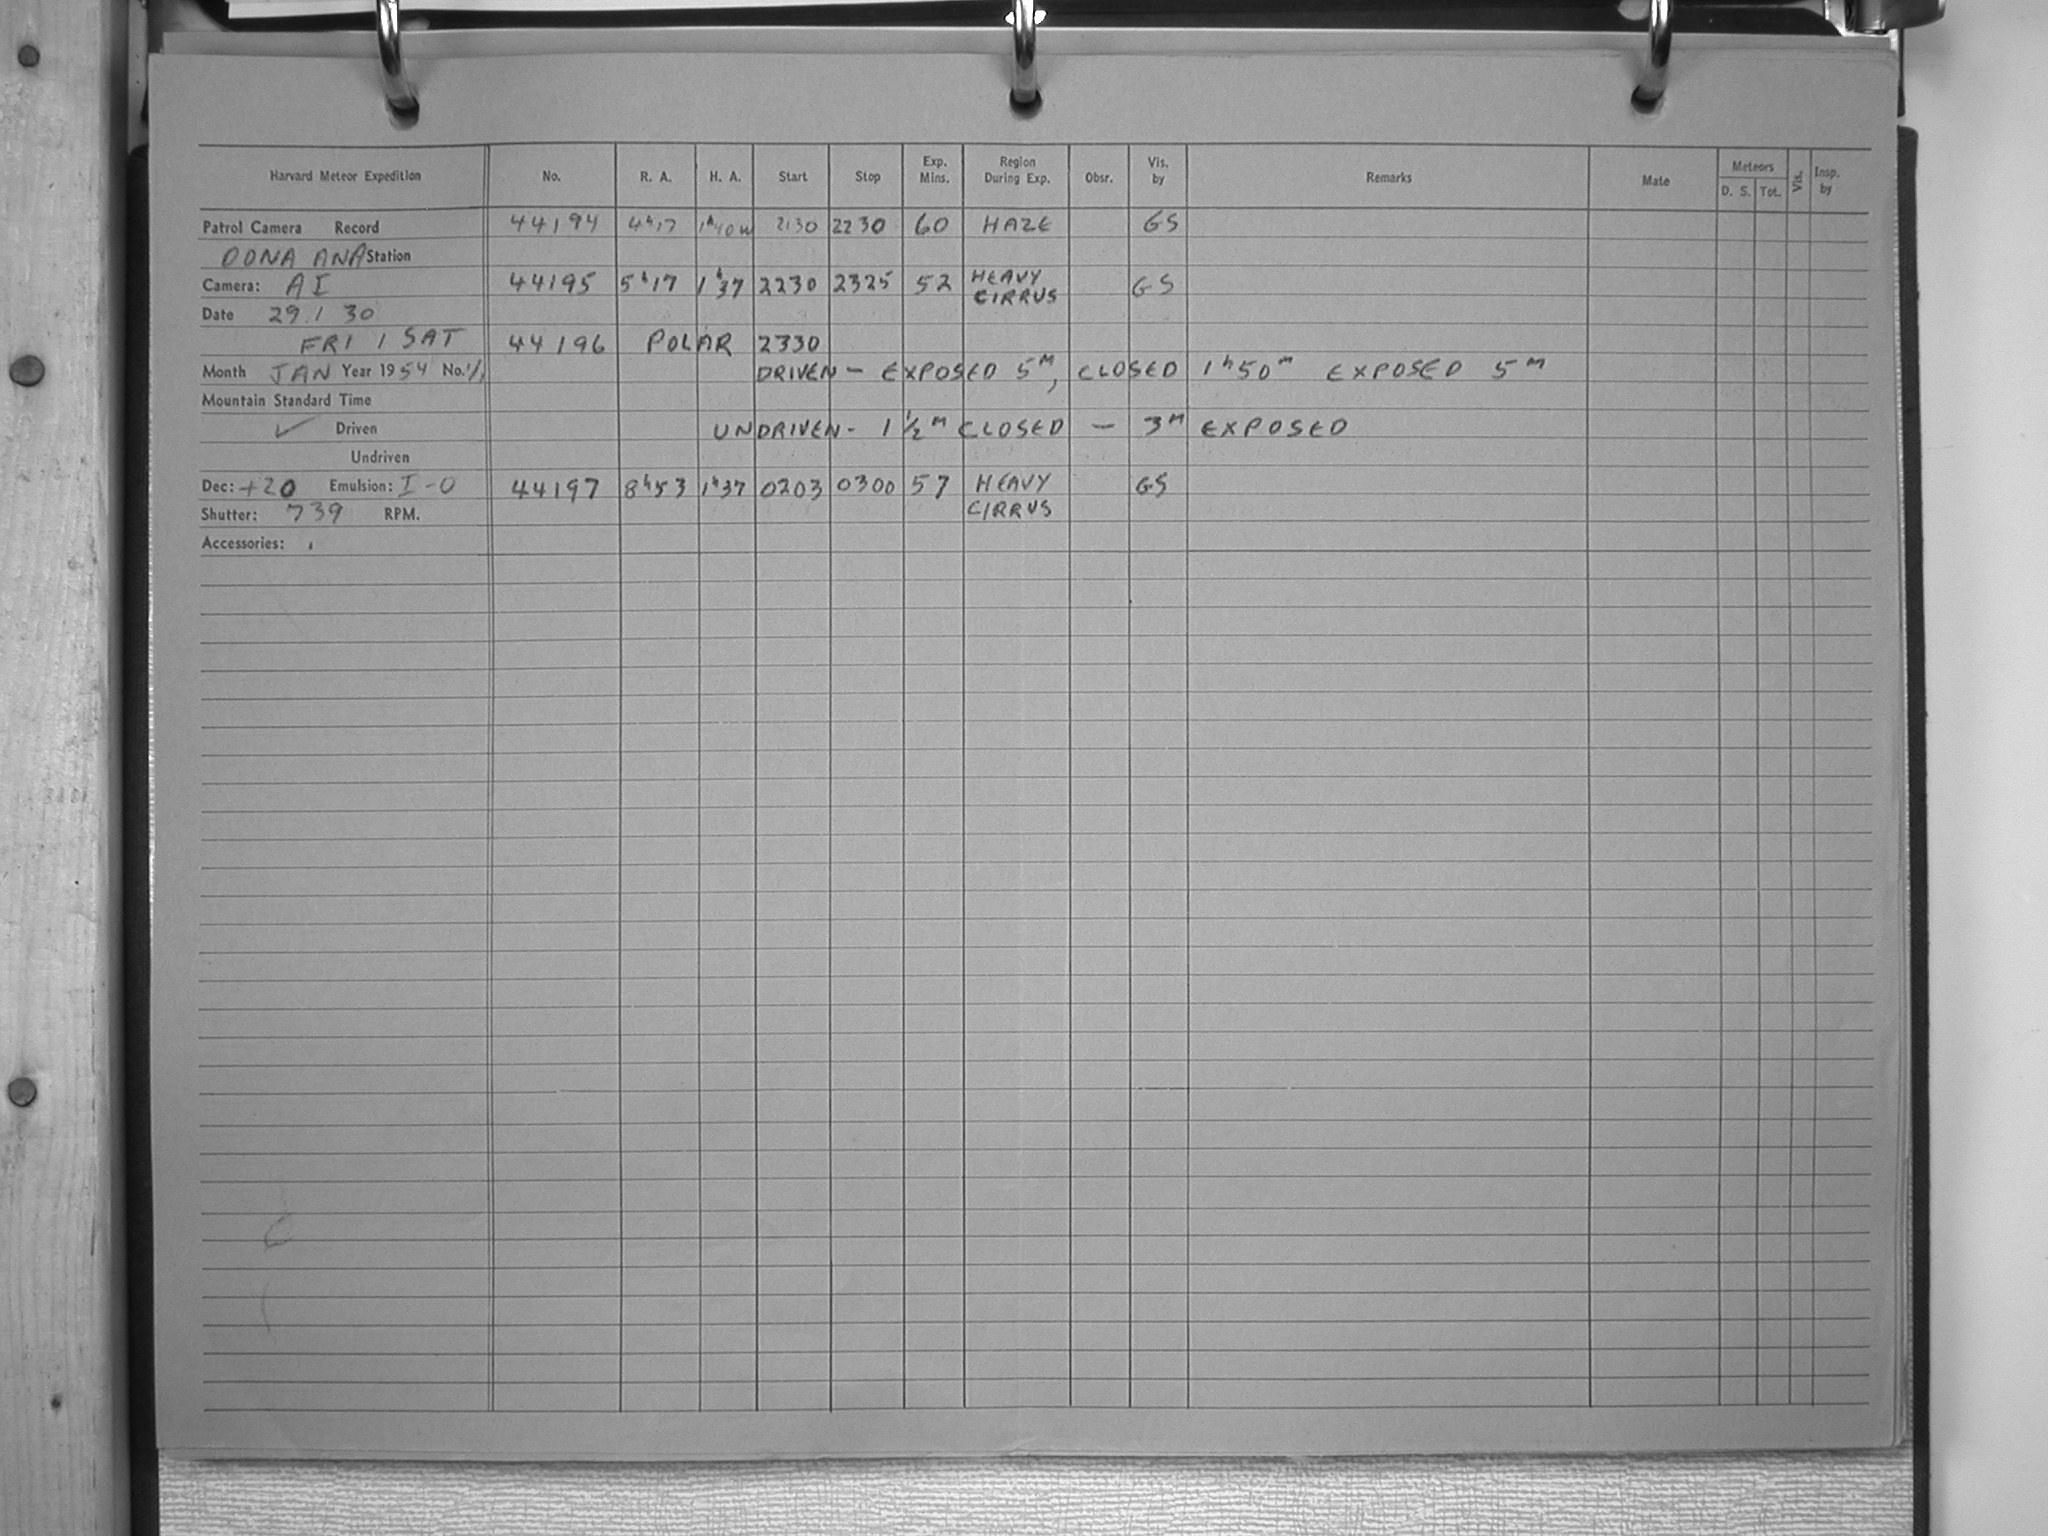 Harvard Meteor Expedition No. R. A. H. A. Start Stop Exp. Mins. Region During Exp. Obsr. Vis. by Remarks Mate Meteors D. S. Tot. Vis. Insp. by
Patrol Camera Record 44194 4h17 1h40w 2130 2230 60 HAZE GS
DONA ANA Station
Camera: AI 44195 5h17 1h37 2230 2325 52 HEAVY CIRRUS GS
Date 29 / 30
FRI / SAT 44196 POLAR 2330
Month JAN Year 1954 No. 1/1 DRIVEN - EXPOSED 5M, CLOSED 1h50m EXPOSED 5M
Mountain Standard Time
✓ Driven UNDRIVEN - 1 1/2M CLOSED - 3M EXPOSED
Undriven
Dec: +20 Emulsion: I-O 44197 8h53 1h37 0203 0300 57 HEAVY CIRRUS GS
Shutter: 739 RPM.
Accessories: